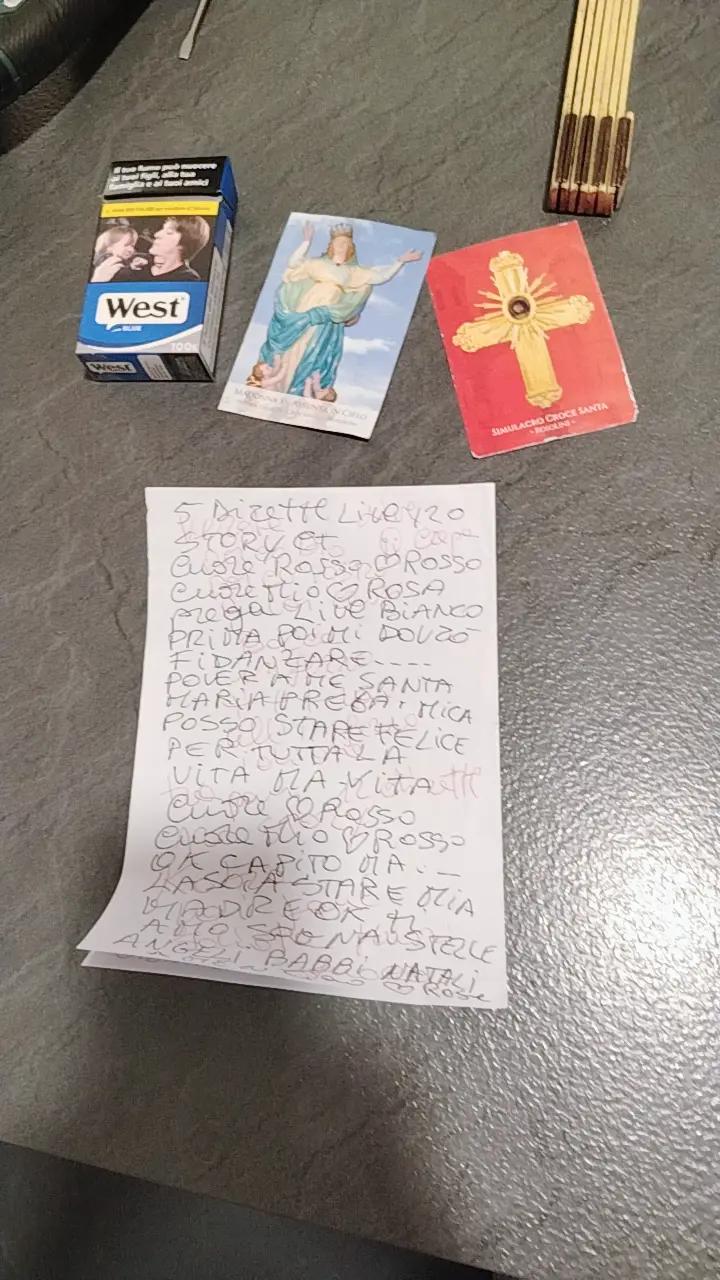 Il tuo fumo può nuocere
ai tuoi figli, alla tua
famiglia e ai tuoi amici
West
BLUE
100s
West
MADONNA ASSUNTA IN CIELO
SIMULACRO CROCE SANTA
- ROSOLINI -
5 Dirette Live
STORY et
cuore Rosso ♡ ROSSO
cuore Mio ♡ ROSA
prega Live BIANCO
PRIMA POI MI DOVRÒ
FIDANZARE----
POVER A ME SANTA
MARIA PREGA. MICA
POSSO STARE FELICE
PER TUTTA LA
VITA MA VITA
cuore ♡ ROSSO
cuore Mio ♡ ROSSO
OK CAPITO MA . _
LASCIA STARE MIA
MADRE OK TI
AMO STELLE
ANGELI BABBI NATALI
♡ Rose